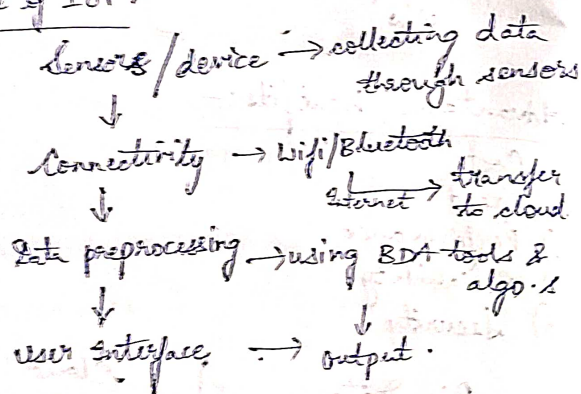 of IOT.
Sensors/device → collecting data
through sensors
↓
Connectivity → Wifi/Bluetooth
Internet → transfer
to cloud
↓
Data preprocessing → using BDA tools &
algo.s
↓ ↓
user Interface → output.